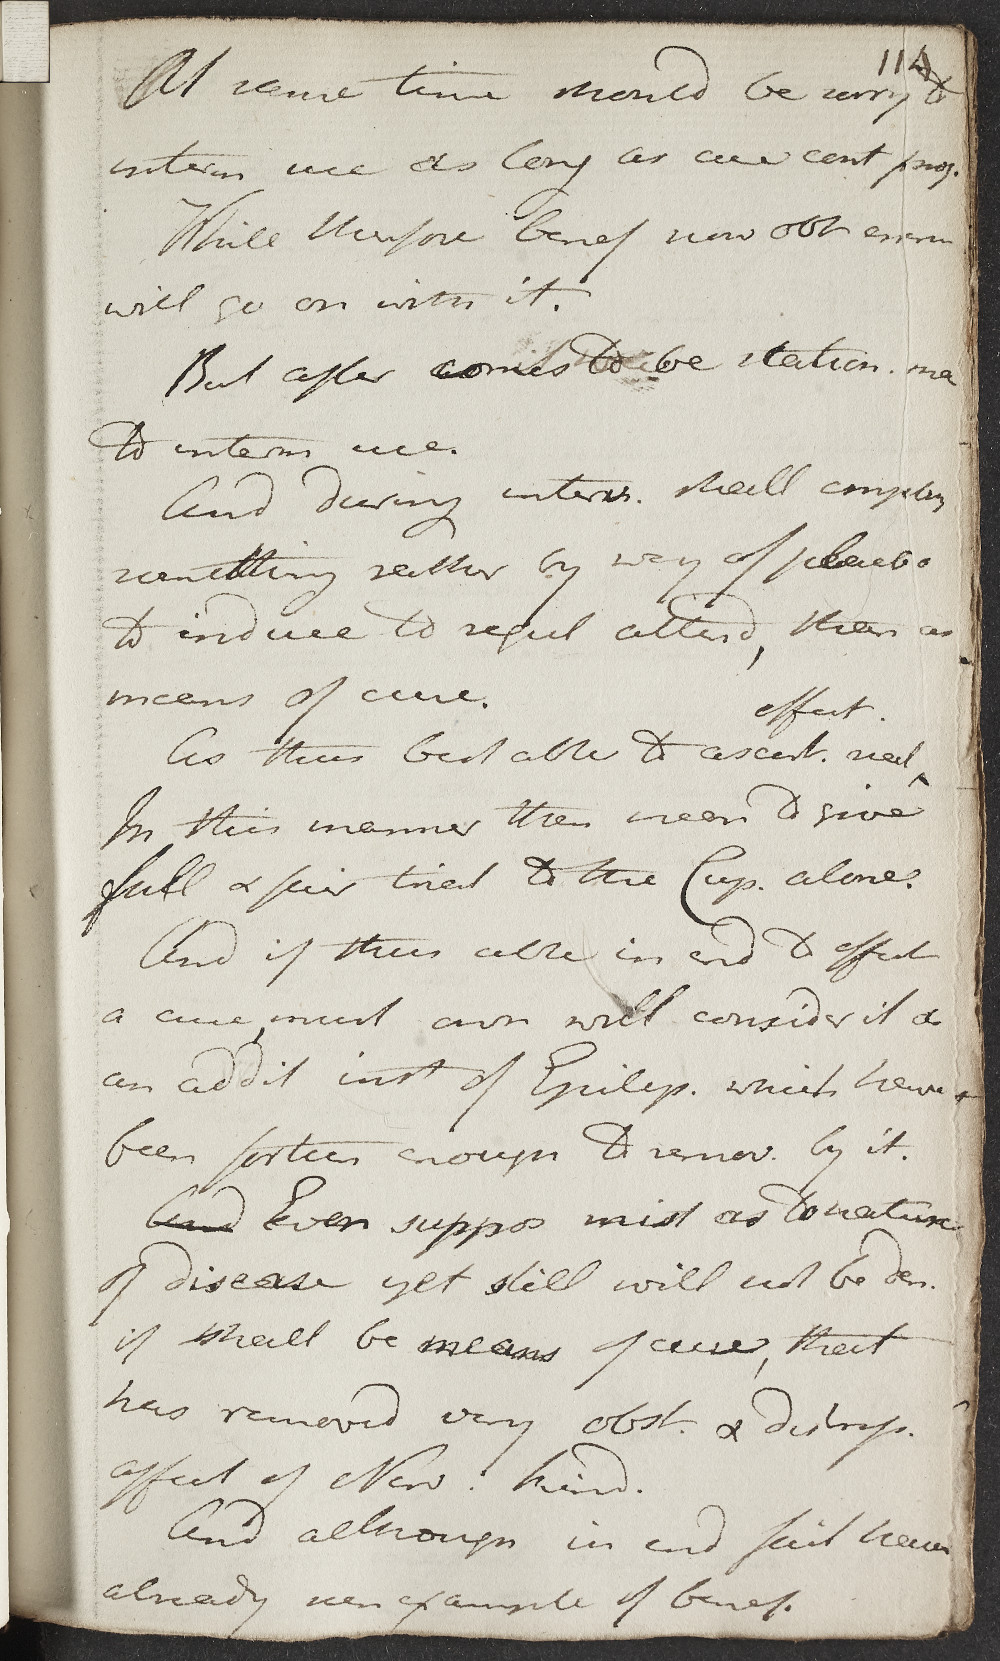 114
At same time should be sorry to
interm use as long as cure cont prog.
While therfore benef now obt
will go on with it.
But after comes to be station. me
to interm use.
And during interm. shall employ
something rather by way of placebo
to induce to regul attend, than as
means of cure.
As thus best able to ascert. real effect.
In this manner then mean to give
full & fair trial to the Cup. alone.
And if thus able in end to effect
a cure, must own will consider it as
an addit inst of Epilep. which have
been fortun enough to remov. by it.
And Even suppos mist as to nature
of disease yet still will not be den.
if shall be means of cure, that
has removed very obst. & distress.
affect of Nerv. kind.
And although in end fail have
already seen example of benef.